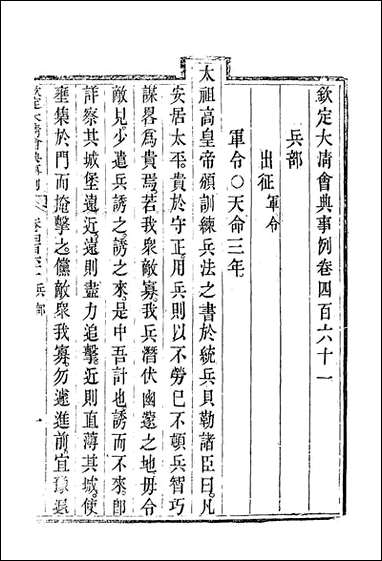 欽定大清會典事例卷四百六十一
兵部
出征軍令
軍令○天命三年
太祖高皇帝頒訓練兵法之書於統兵貝勒諸臣曰凡
安居太平貴於守正用兵則以不勞已不頓兵智巧
謀畧為貴焉若我衆敵寡我兵潛伏幽邃之地毋令
敵見少遣兵誘之誘之來是中吾計也誘而不來卽
詳察其城堡遠近遠則盡力追擊近則直薄其城使
壅集於門而掩擊之儻敵衆我寡勿遽進前宜豫退
欽定大清會典事例 兵部 一